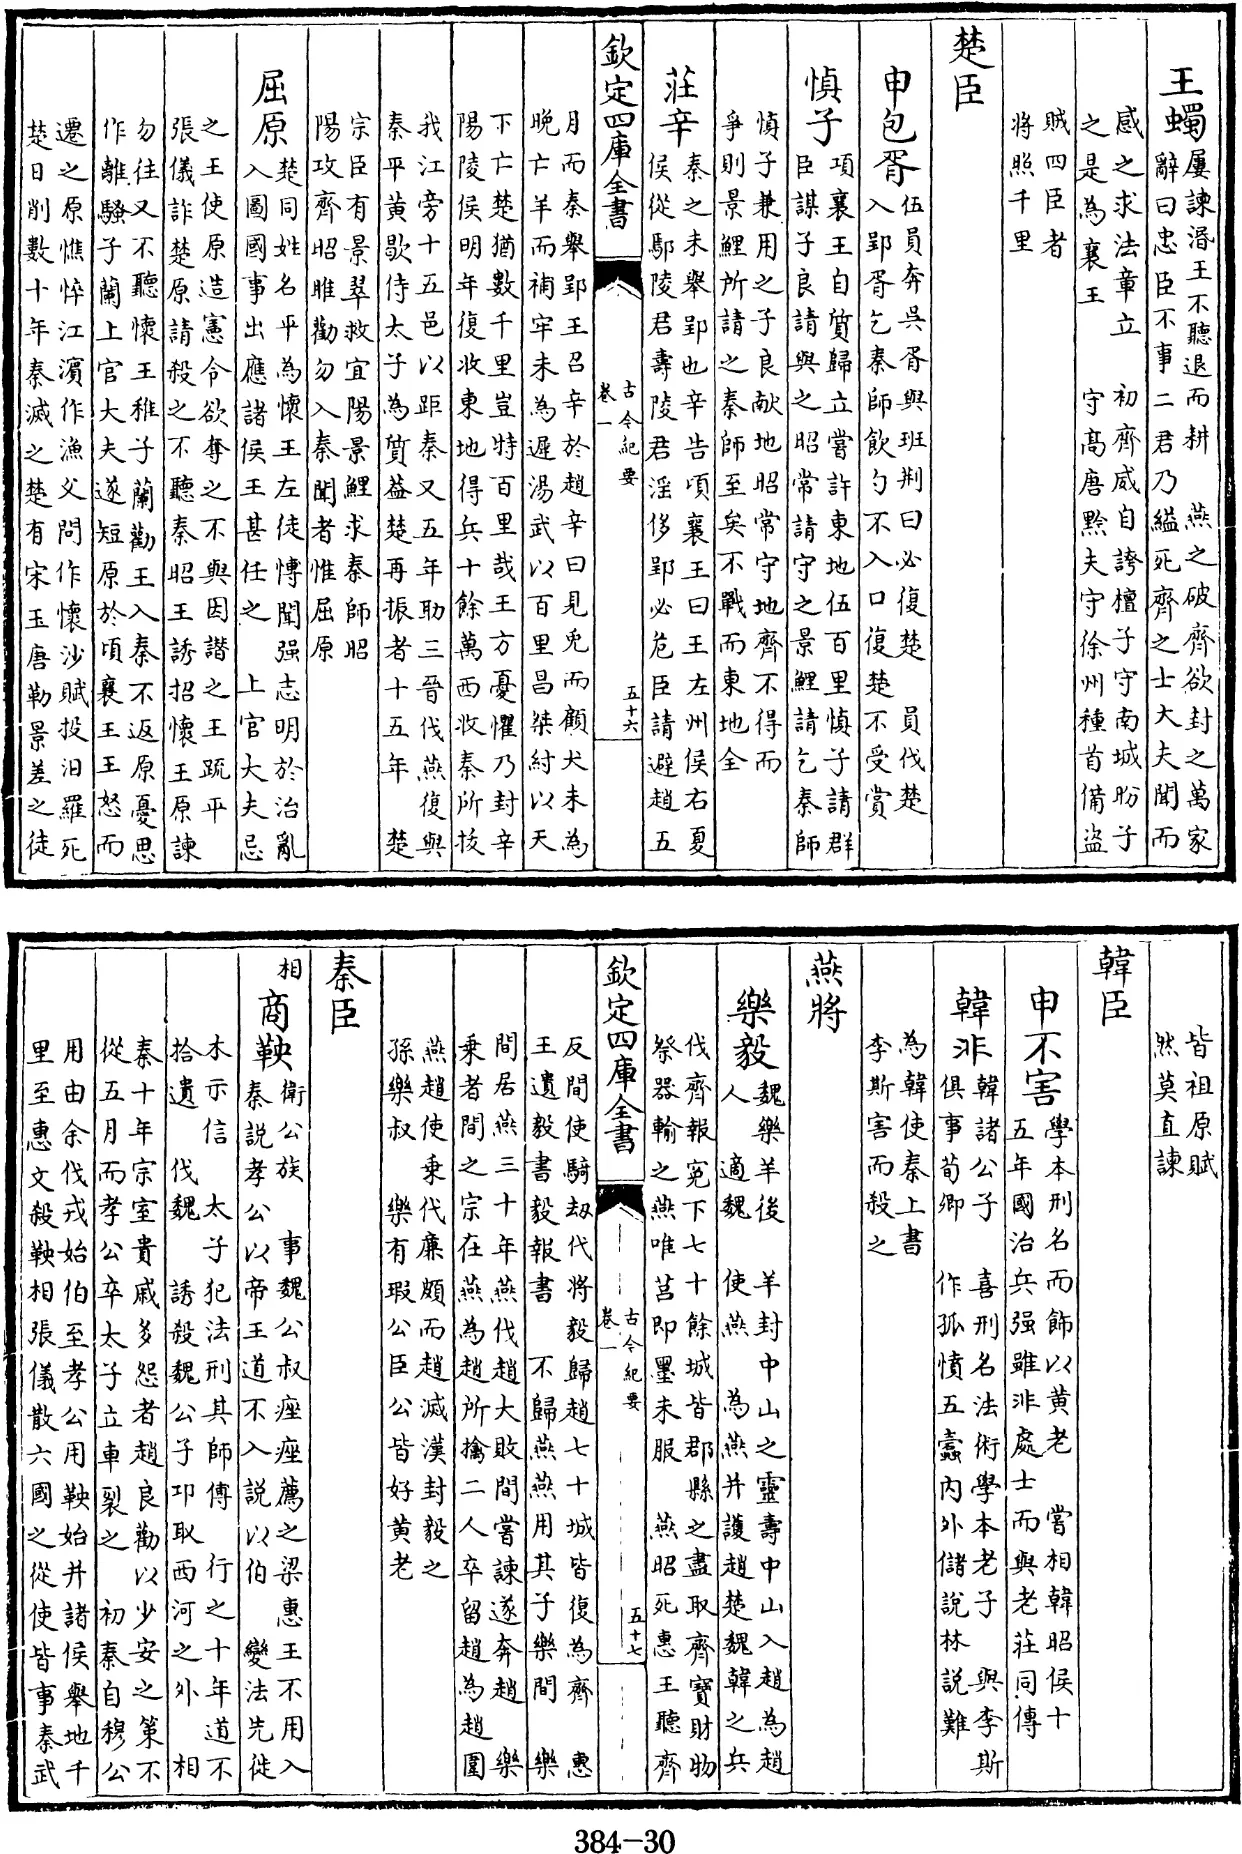 王蠋屢諫湣王不聽退而耕　燕之破齊欲封之萬家
辭曰忠臣不事二君乃縊死齊之士大夫聞而
感之求法章立　初齊威自誇檀子守南城盼子
之是為襄王　守高唐黔夫守徐州種首備盜
賊四臣者
將照千里
楚臣
申包胥伍員奔吳胥與班荆曰必復楚　員伐楚
入郢胥乞秦師飲勺不入口復楚不受賞
慎子項襄王自質歸立嘗許東地伍百里慎子請群
臣謀子良請與之昭常請守之景鯉請乞秦師
慎子兼用之子良献地昭常守地齊不得而
爭則景鯉所請之秦師至矣不戰而東地全
莊辛秦之未舉郢也辛告頃襄王曰王左州侯右夏
侯從鄢陵君壽陵君淫侈郢必危臣請避趙五
欽定四庫全書
古今紀要
卷一
五十六
月而秦舉郢王召辛於趙辛曰見兎而顧犬未為
晚亡羊而補牢未為遲湯武以百里昌桀紂以天
下亡楚猶數千里豈特百里哉王方憂懼乃封辛
陽陵侯明年復收東地得兵十餘萬西收秦所拔
我江旁十五邑以距秦又五年助三晉伐燕復與
秦平黄歇侍太子為質益楚再振者十五年　楚
宗臣有景翠救宜陽景鯉求秦師昭
陽攻齊昭睢勸勿入秦聞者惟屈原
屈原楚同姓名平為懷王左徒愽聞强志明於治亂
入圖國事出應諸侯王甚任之　上官大夫忌
之王使原造憲令欲奪之不與因譖之王疏平
張儀詐楚原請殺之不聽秦昭王誘招懷王原諫
勿往又不聽懷王稚子蘭勸王入秦不返原憂思
作離騷子蘭上官大夫遂短原於頃襄王王怒而
遷之原憔悴江濱作漁父問作懷沙賦投汨羅死
楚日削數十年秦滅之楚有宋玉唐勒景差之徒
皆祖原賦
然莫直諫
韓臣
申不害學本刑名而飾以黄老　嘗相韓昭侯十
五年國治兵强雖非處士而與老莊同傳
韓非韓諸公子　喜刑名法術學本老子　與李斯
俱事荀卿　作孤憤五蠹内外儲說林說難
為韓使秦上書
李斯害而殺之
燕將
樂毅魏樂羊後　羊封中山之靈壽中山入趙為趙
人　適魏　使燕　為燕并護趙楚魏韓之兵
伐齊報寃下七十餘城皆郡縣之盡取齊寶財物
祭器輸之燕唯莒即墨未服　燕昭死惠王聽齊
欽定四庫全書
古今紀要
卷一
五十七
反間使騎刼代將毅歸趙七十城皆復為齊　惠
王遺毅書毅報書　不歸燕燕用其子樂間　樂
間居燕三十年燕伐趙大敗間嘗諫遂奔趙　樂
乗者間之宗在燕為趙所擒二人卒留趙為趙圍
燕趙使乗代廉頗而趙滅漢封毅之
孫樂叔　樂有瑕公臣公皆好黄老
秦臣
相商鞅衛公族　事魏公叔痤痤薦之梁惠王不用入
秦說孝公以帝王道不入說以伯　變法先徙
木示信　太子犯法刑其師傅　行之十年道不
拾遺　伐魏　誘殺魏公子卬取西河之外　相
秦十年宗室貴戚多怨者趙良勸以少安之策不
從五月而孝公卒太子立車裂之　初秦自穆公
用由余伐戎始伯至孝公用鞅始并諸侯舉地千
里至惠文殺鞅相張儀散六國之從使皆事秦武
384-30